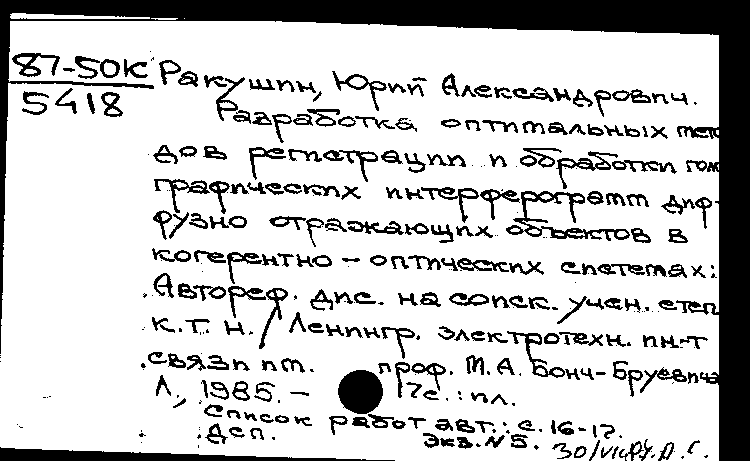 87-50К
5418
Ракушин, Юрий Александрович.
Разработка оптимальных мето
дов регистрации и обработки гол
графических интерферограмм диф-
фузно отражающих объектов в
когерентно-оптических системах:
Автореф. дис. на соиск. учен. степ
к.т.н. / Ленингр. электротехн. ин-т
связи им. проф. М.А. Бонч-Бруевича
Л., 1985. - 17с.: ил.
Список работ авт.: с. 16-17.
Дсп. Экз. №5.